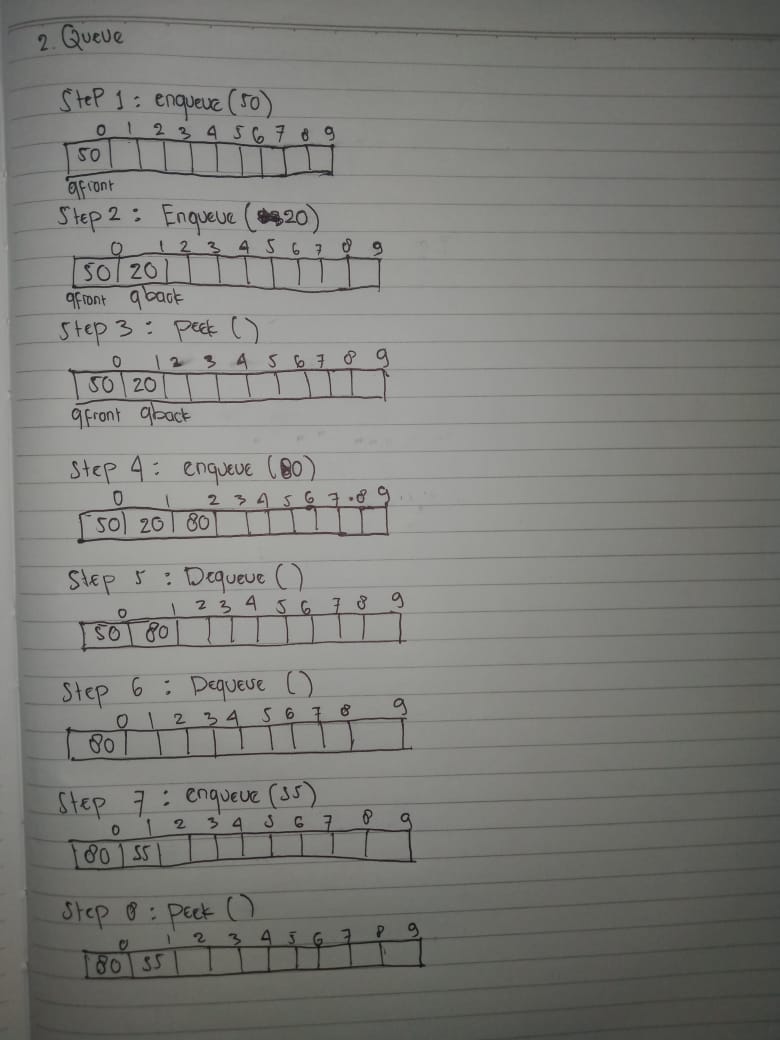 2. Queue
Step 1 : enqueue (50)
0 1 2 3 4 5 6 7 8 9
50
qfront
Step 2 : Enqueue (20)
0 1 2 3 4 5 6 7 8 9
50 20
qfront qback
Step 3 : peek ()
0 1 2 3 4 5 6 7 8 9
50 20
qfront qback
Step 4 : enqueue (80)
0 1 2 3 4 5 6 7 8 9
50 20 80
Step 5 : Dequeue ()
0 1 2 3 4 5 6 7 8 9
50 80
Step 6 : Dequeue ()
0 1 2 3 4 5 6 7 8 9
80
Step 7 : enqueue (55)
0 1 2 3 4 5 6 7 8 9
80 55
Step 8 : peek ()
0 1 2 3 4 5 6 7 8 9
80 55